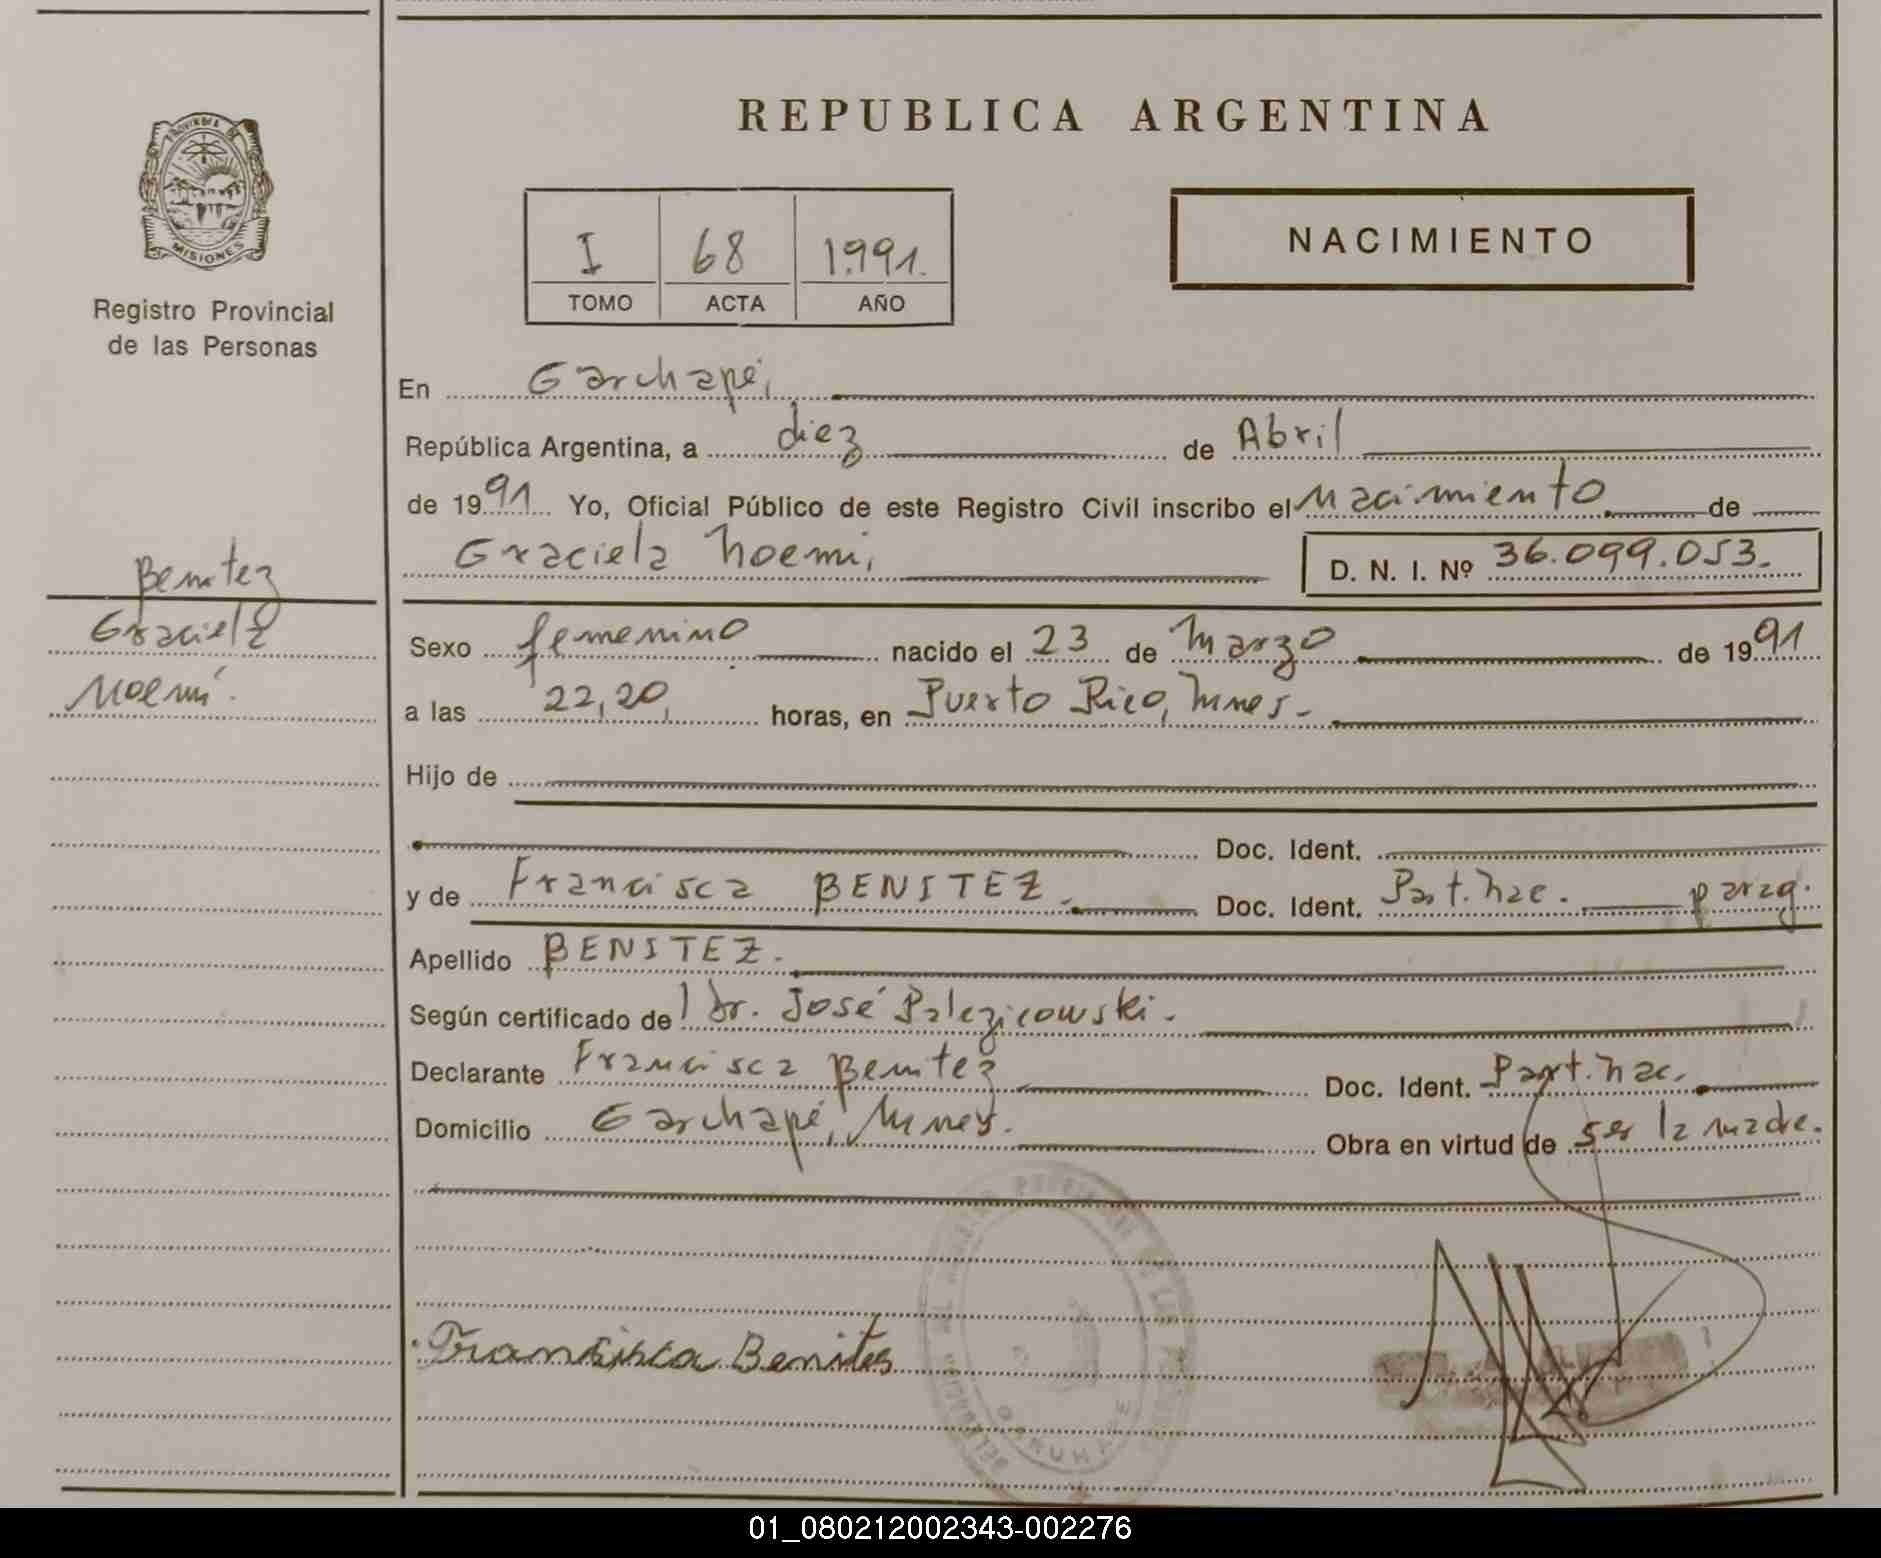 REPUBLICA ARGENTINA
PROVINCIA DE
MISIONES
Registro Provincial
de las Personas
I 68 1.991.
TOMO ACTA AÑO
NACIMIENTO
En Garuhapé,
República Argentina, a diez de Abril
de 1991. Yo, Oficial Público de este Registro Civil inscribo el Nacimiento de
Graciela Noemi, D. N. I. Nº 36.099.053.
Benitez
Graciela
Noemí.
Sexo femenino nacido el 23 de Marzo de 1991
a las 22,20, horas, en Puerto Rico, Mnes.
Hijo de
Doc. Ident.
y de Francisca BENITEZ. Doc. Ident. Part. Nac. parag.
Apellido BENITEZ.
Según certificado del Dr. José
Declarante Francisca Benitez Doc. Ident. Part. Nac.
Domicilio Garuhapé, Mnes. Obra en virtud de ser la madre.
Francisca Benites
GARUHAPE
01_080212002343-002276